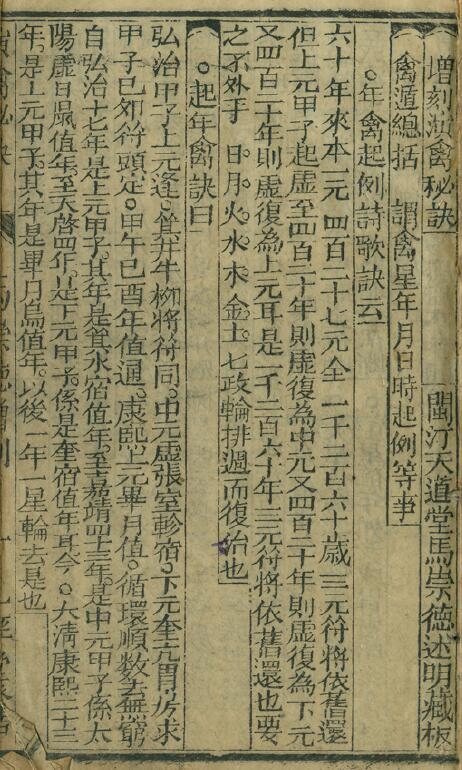 增刻演禽秘訣
閩汀天道堂馬崇德述明藏板
禽遁總括 謂禽星年月日時起例等事
○年禽起例詩歌訣云
六十年來本一元 四百二十七元全 一千二百六十歲 三元符將依舊還
但上元甲子起虛至四百二十年則虛復為中元又四百二十年則虛復為下元
又四百二十年則虛復為上元耳是一千二百六十年三元符將依舊還也要
之不外乎 日月火水木金土七政輪排週而復始也
○起年禽訣曰
弘治甲子上元逢。箕井牛柳將符同。中元虛張室軫宿。下元奎亢胃房求
甲子己卯符頭定。甲午己酉年值通。康熙上元畢月值。循環順數去無窮
自弘治十七年是上元甲子其年是箕水宿值年。至嘉靖四十三年。是中元甲子係太
陽虛日鼠值年。至天啓四年。是下元甲子。係是奎宿值年耳今。○大清康熙二十三
年。是上元甲子。其年是畢月烏值年。以後一年一星輪去是也